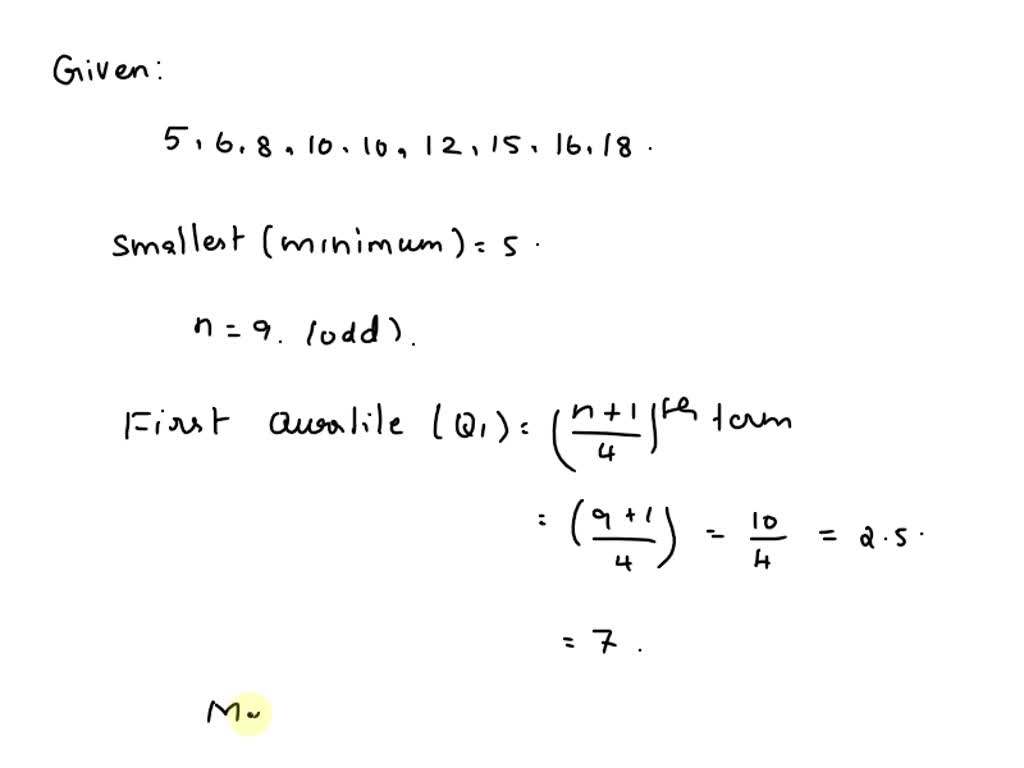 Given:
5, 6, 8, 10, 10, 12, 15, 16, 18.
Smallest (minimum) = 5.
n = 9. (odd).
First Quartile (Q1) = (n+1/4)th term
= (9+1/4) = 10/4 = 2.5.
= 7.
M